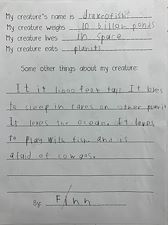 My creature's name is drakeofishy
My creature weighs 10 billon ponds
My creature lives in space
My creature eats planits
Some other things about my creature:
It is 1000 feet tall It likes
to sleep in caves on other planits
It loves the ocean. It loves
to play with fish and is
afad of cowgos.
By: Finn